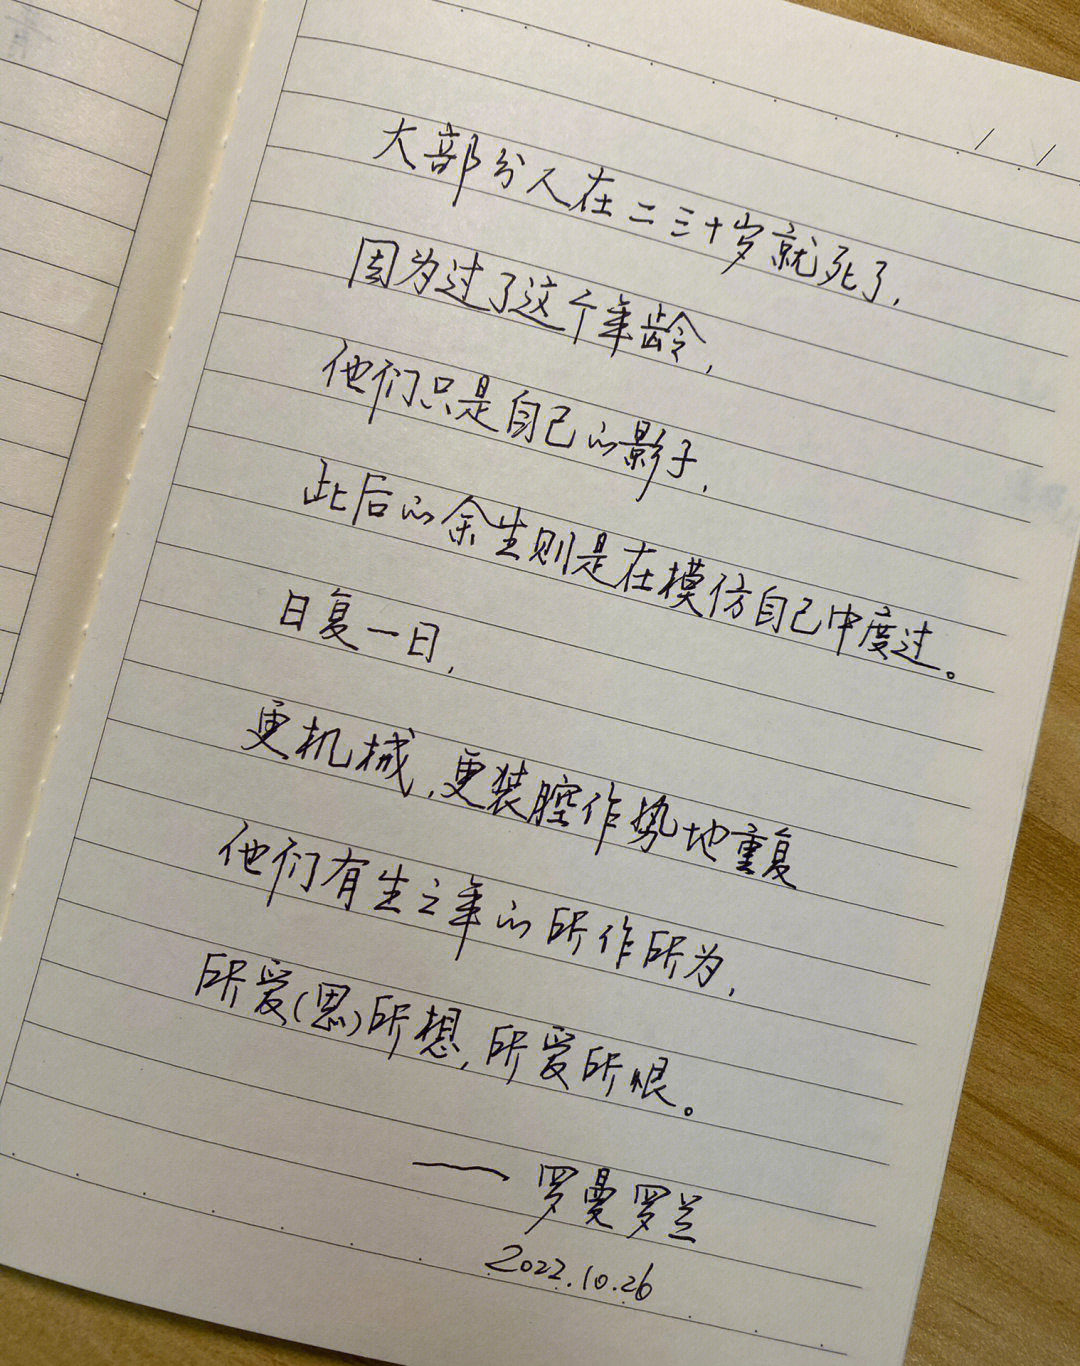 大部分人在二三十岁就死了,
因为过了这个年龄,
他们只是自己的影子,
此后的余生则是在模仿自己中度过。
日复一日,
更机械,更装腔作势地重复
他们有生之年的所作所为,
所爱(思)所想,所爱所恨。
——罗曼罗兰
2022.10.26